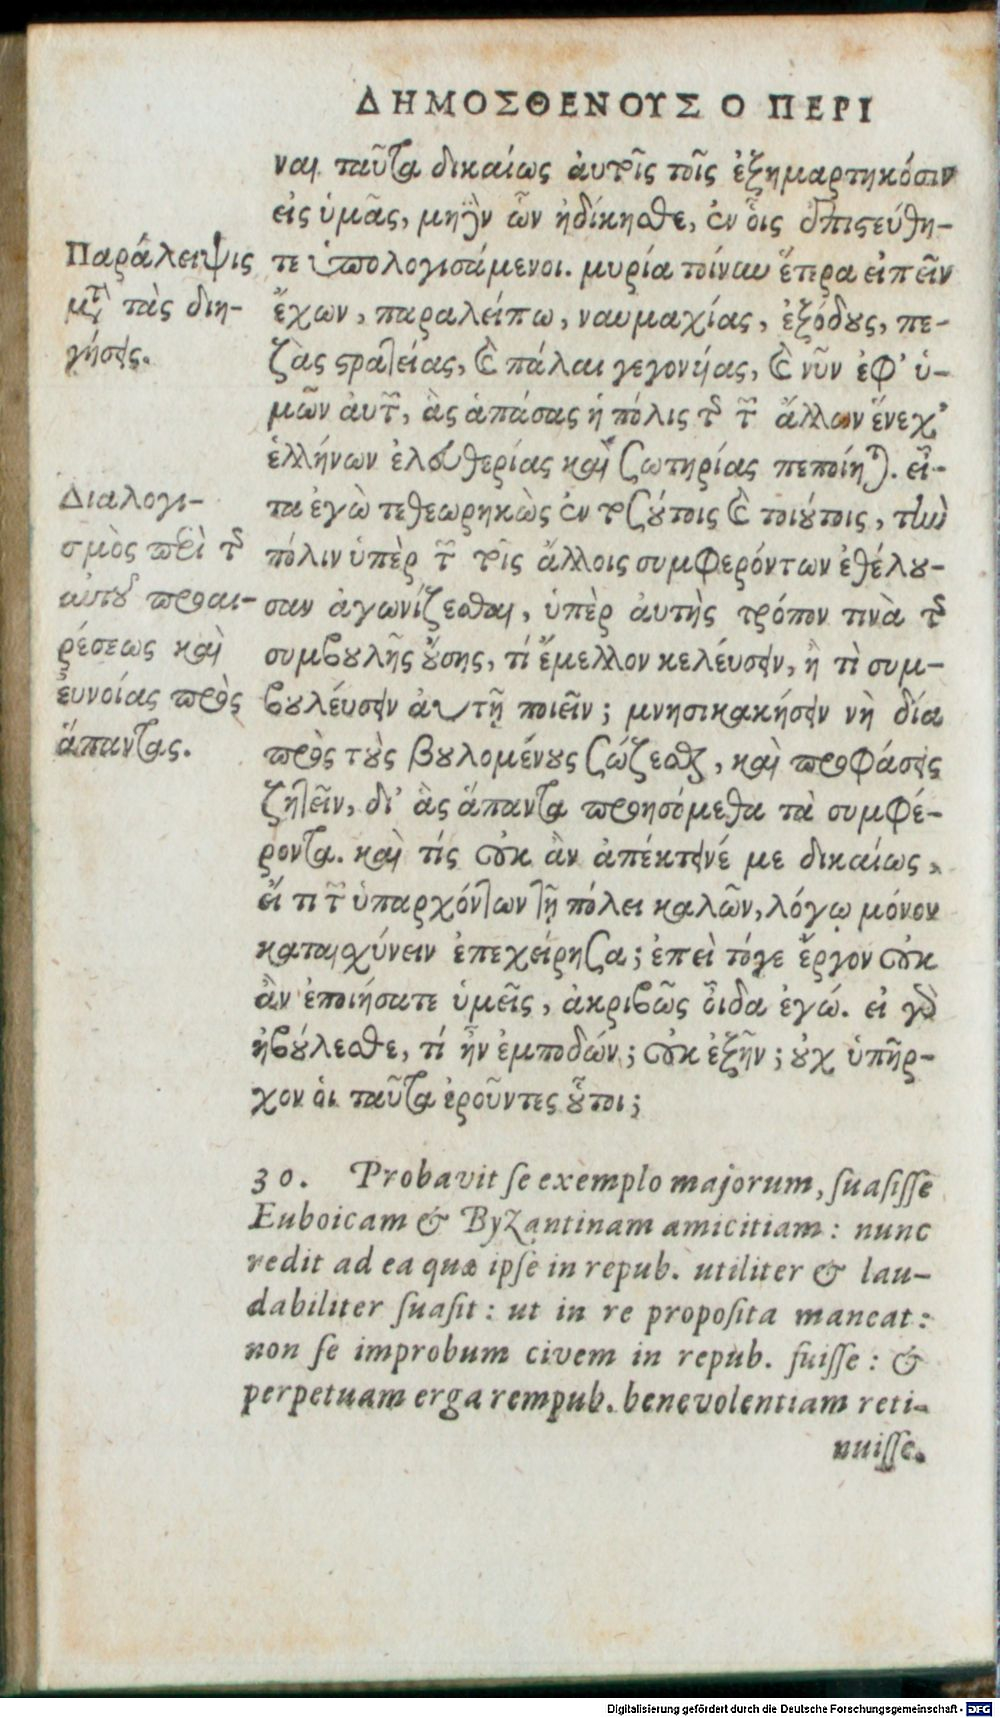 ΔΗΜΟΣΘΕΝΟΥΣ Ο ΠΕΡΙ
ναι ταῦτα δικαίως ἀυτοῖς τοῖς ἐξημαρτηκόσιν
εἰς ὑμᾶς, μηδὲν ὧν ἠδίκησθε, ἐν οἷς ἐπιστεύθη-
τε ὑπολογισάμενοι. μυρία τοίνυν ἕτερα εἰπεῖν
ἔχων, παραλείπω, ναυμαχίας, ἐξόδους, πε-
ζὰς στρατείας, καὶ πάλαι γεγονυίας, καὶ νῦν ἐφ' ὑ-
μῶν ἀυτῶν, ἃς ἁπάσας ἡ πόλις τῆς τῶν ἄλλων ἕνεχ'
ἑλλήνων ἐλευθερίας καὶ σωτηρίας πεποίηται. εἶ-
τα ἐγὼ τεθεωρηκὼς ἐν τοσούτοις καὶ τοιούτοις, τὴν
πόλιν ὑπὲρ τῶν τοῖς ἄλλοις συμφερόντων ἐθέλου-
σαν ἀγωνίζεσθαι, ὑπὲρ ἀυτῆς τρόπον τινὰ τῆς
συμβουλῆς οὔσης, τί ἔμελλον κελεύσειν, ἢ τὶ συμ-
βουλέυσειν ἀυτῇ ποιεῖν; μνησικακήσειν νὴ δία
πρὸς τοὺς βουλομένους σώζεσθαι, καὶ προφάσεις
ζητεῖν, δι' ἃς ἅπαντα προησόμεθα τὰ συμφέ-
ροντα. καὶ τίς οὐκ ἂν ἀπέκτεινέ με δικαίως,
εἴ τι τῶν ὑπαρχόντων τῇ πόλει καλῶν, λόγῳ μόνον
καταισχύνειν ἐπεχείρησα; ἐπεὶ τόγε ἔργον οὐκ
ἂν ἐποιήσατε ὑμεῖς, ἀκριβῶς οἶδα ἐγώ. εἰ γὰρ
ἠβούλεσθε, τί ἦν ἐμποδών; οὐκ ἐξῆν; οὐχ ὑπῆρ-
χον οἱ ταῦτα ἐροῦντες οὗτοι;
Παράλειψις
μετὰ τὰς διη-
γήσεις.
Διαλογι-
σμὸς περὶ τῆς
αὐτοῦ προαι-
ρέσεως καὶ
ἐυνοίας πρὸς
ἅπαντας.
30. Probavit ſe exemplo majorum, ſuaſiſſe
Euboicam & Byzantinam amicitiam: nunc
redit ad ea quæ ipſe in repub. utiliter & lau-
dabiliter ſuaſit: ut in re propoſita maneat:
non ſe improbum civem in repub. fuiſſe: &
perpetuam erga rempub. benevolentiam reti-
nuiſſe.
Digitalisierung gefördert durch die Deutsche Forschungsgemeinschaft - DFG